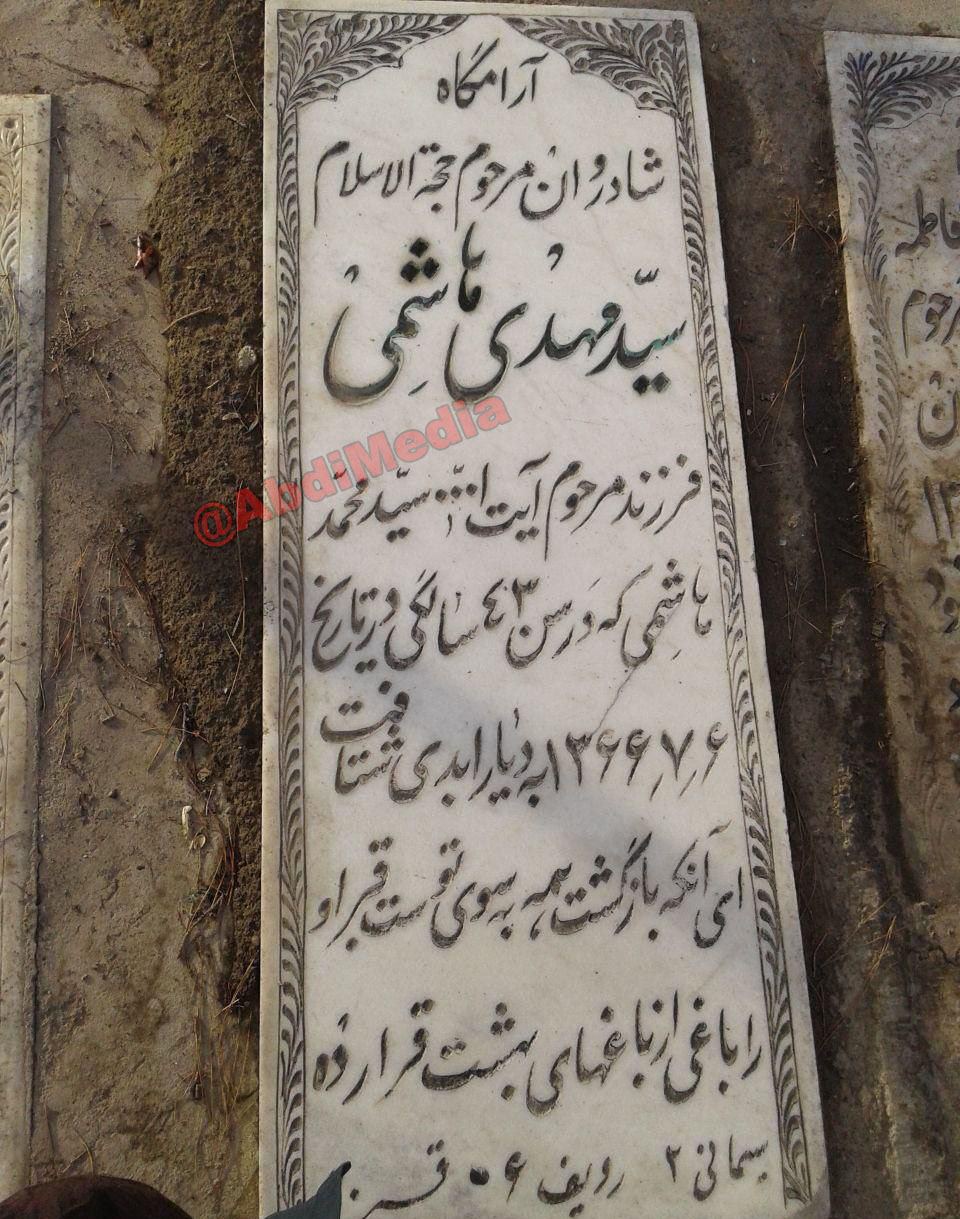 آرامگاه
شادروان مرحوم حجة الاسلام
سیّد مهدی هاشمی
فرزند مرحوم آیت الله سیّد محمّد
هاشمی که در سن ۴۳ سالگی در تاریخ
۶ر۷ر۱۳۶۶ به دیار ابدی شتافت
ای آنکه بازگشت همه به سوی توست قبر او
را باغی از باغهای بهشت قرار ده
سیمانی ۲ ردیف ۰۶
@AbdiMedia
فاطمه
مرحوم